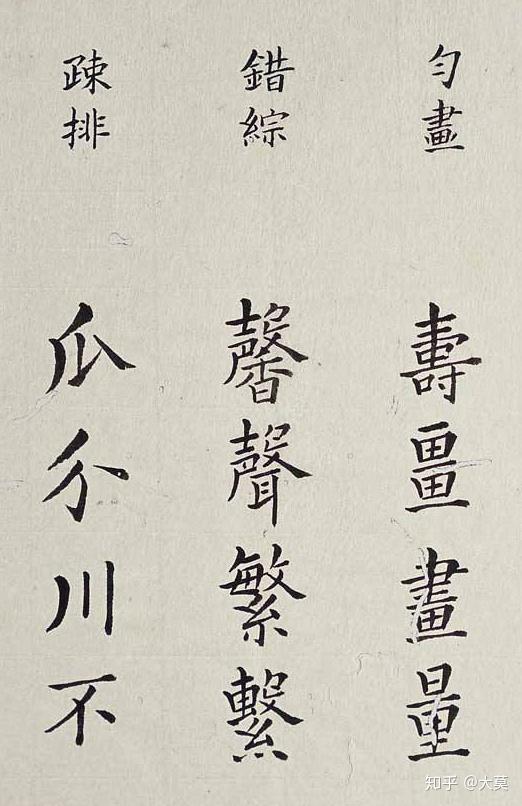 勻畫
壽畺畫量
錯綜
馨聲繁繫
疎排
瓜分川不
知乎 @大莫